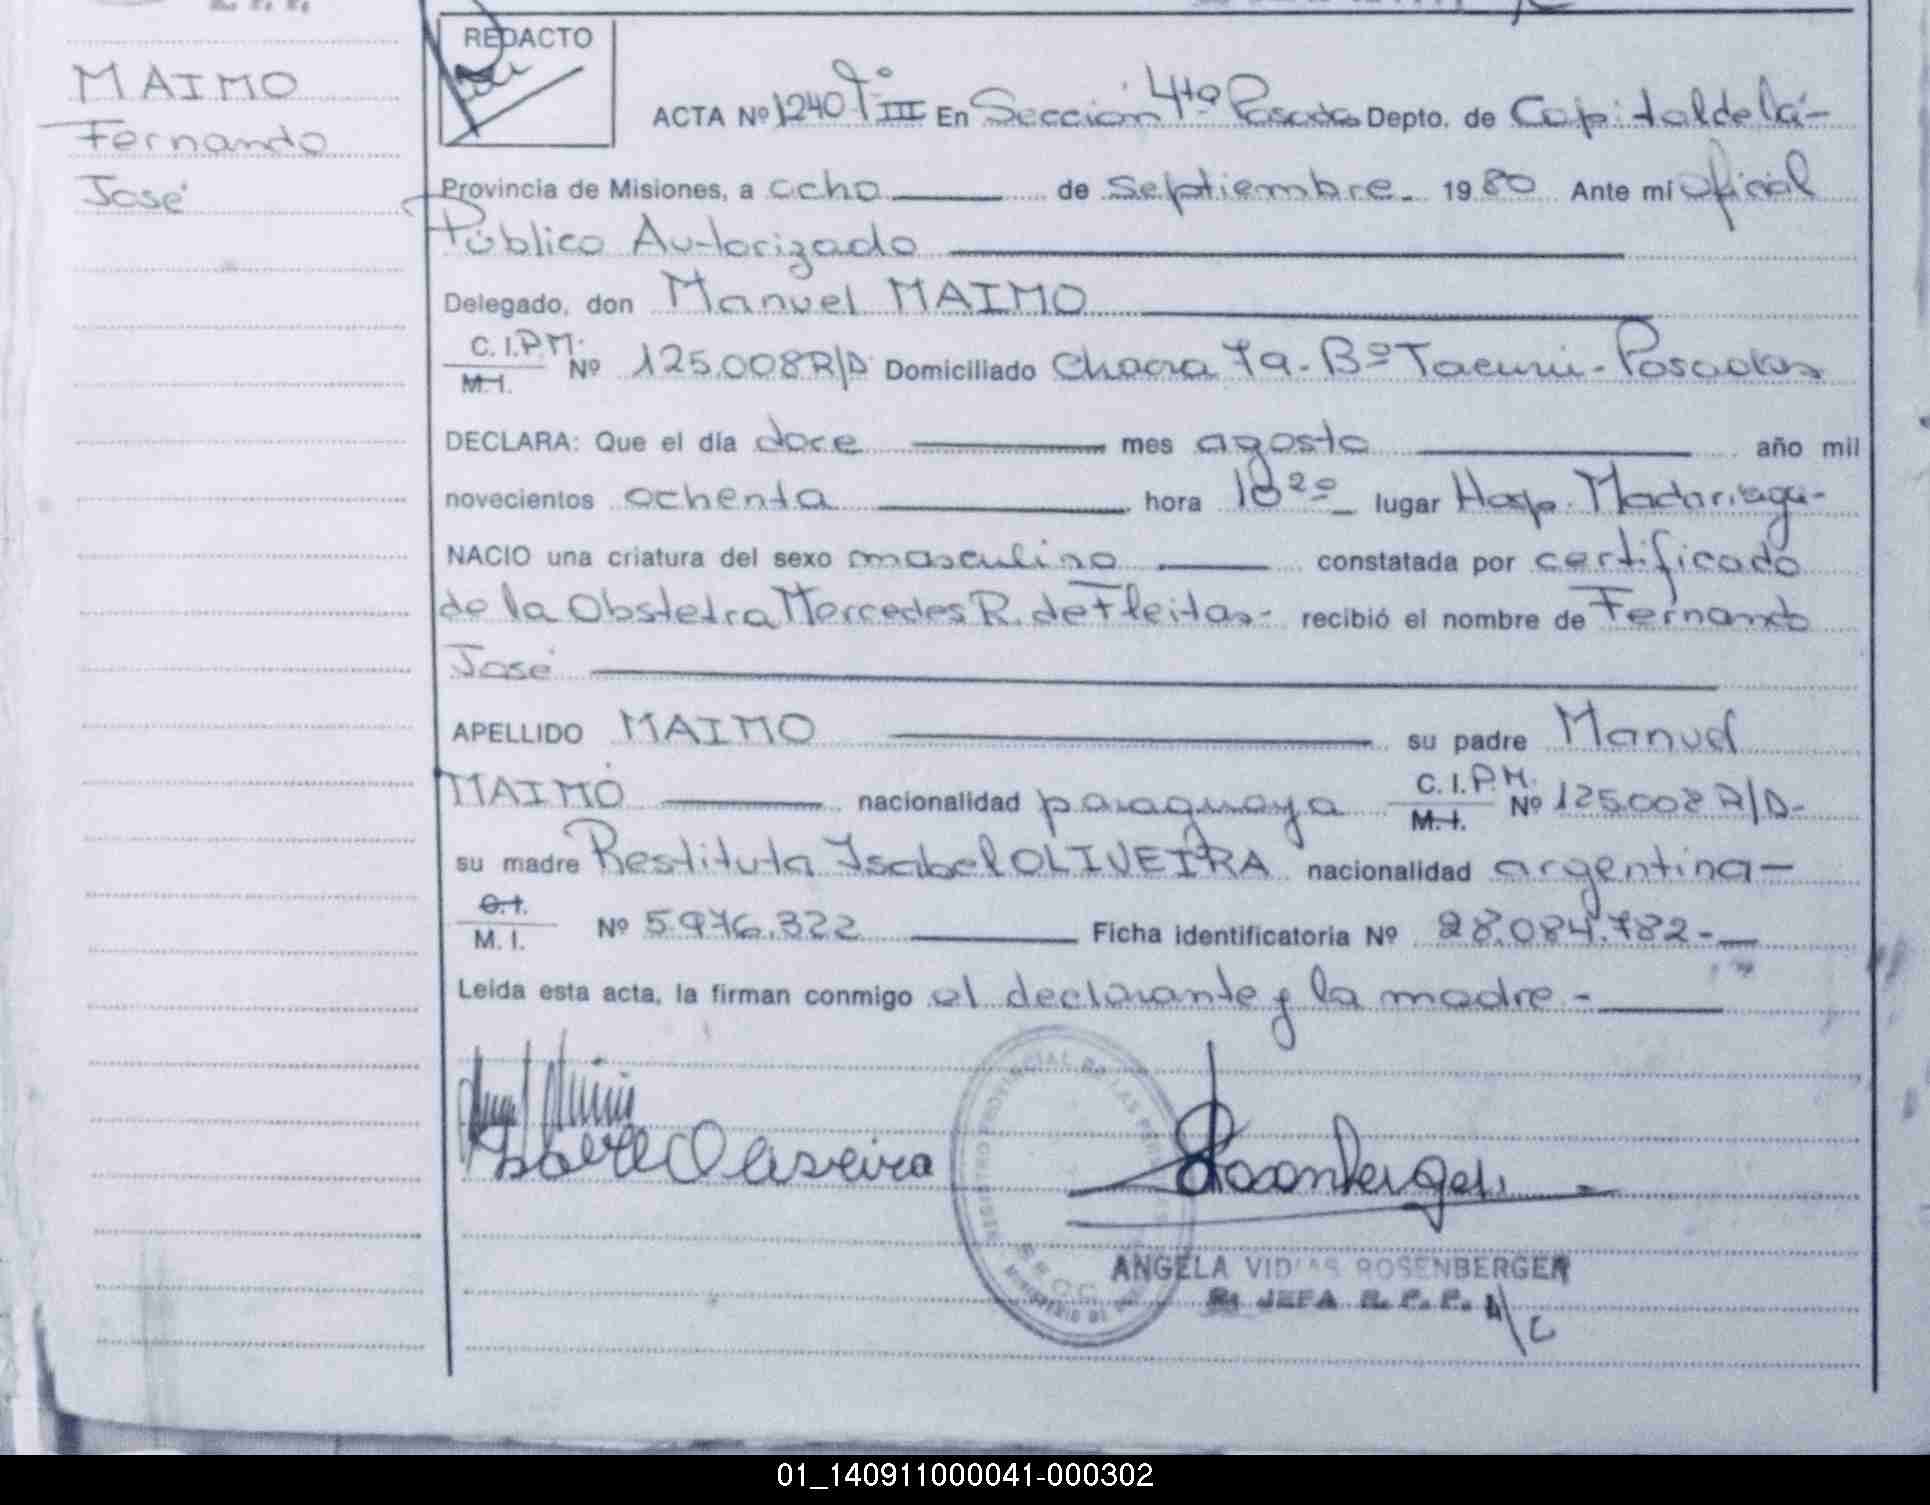 MAIMO
Fernando
José
REDACTO
ACTA Nº 1240 Tº III En Sección 4ta Posadas Depto. de Capital de la-
Provincia de Misiones, a ocho de septiembre. 1980 Ante mí oficial
Público Autorizado
Delegado, don Manuel MAIMO
C.I.P.M. M.I. Nº 125.008 R/D Domiciliado Chacra 79-Bº Tacurú-Posadas
DECLARA: Que el día doce mes agosto año mil
novecientos ochenta hora lugar Hosp. Madariaga-
NACIO una criatura del sexo masculino constatada por certificado
de la Obstetra Mercedes R. de Fleitas- recibió el nombre de Fernando
José
APELLIDO MAIMO su padre Manuel
MAIMO nacionalidad paraguaya C.I.P.M. M.I. Nº 125.008 R/D-
su madre Restituta Isabel OLIVEIRA nacionalidad argentina-
C.I. M.I. Nº 5.976.322 Ficha identificatoria Nº 28.084.782-
Leída esta acta, la firman conmigo el declarante y la madre-
REGISTRO PROVINCIAL DE LAS
MINISTERIO DE
ANGELA ROSENBERGER
JEFA R. P. P. A/C
01_140911000041-000302